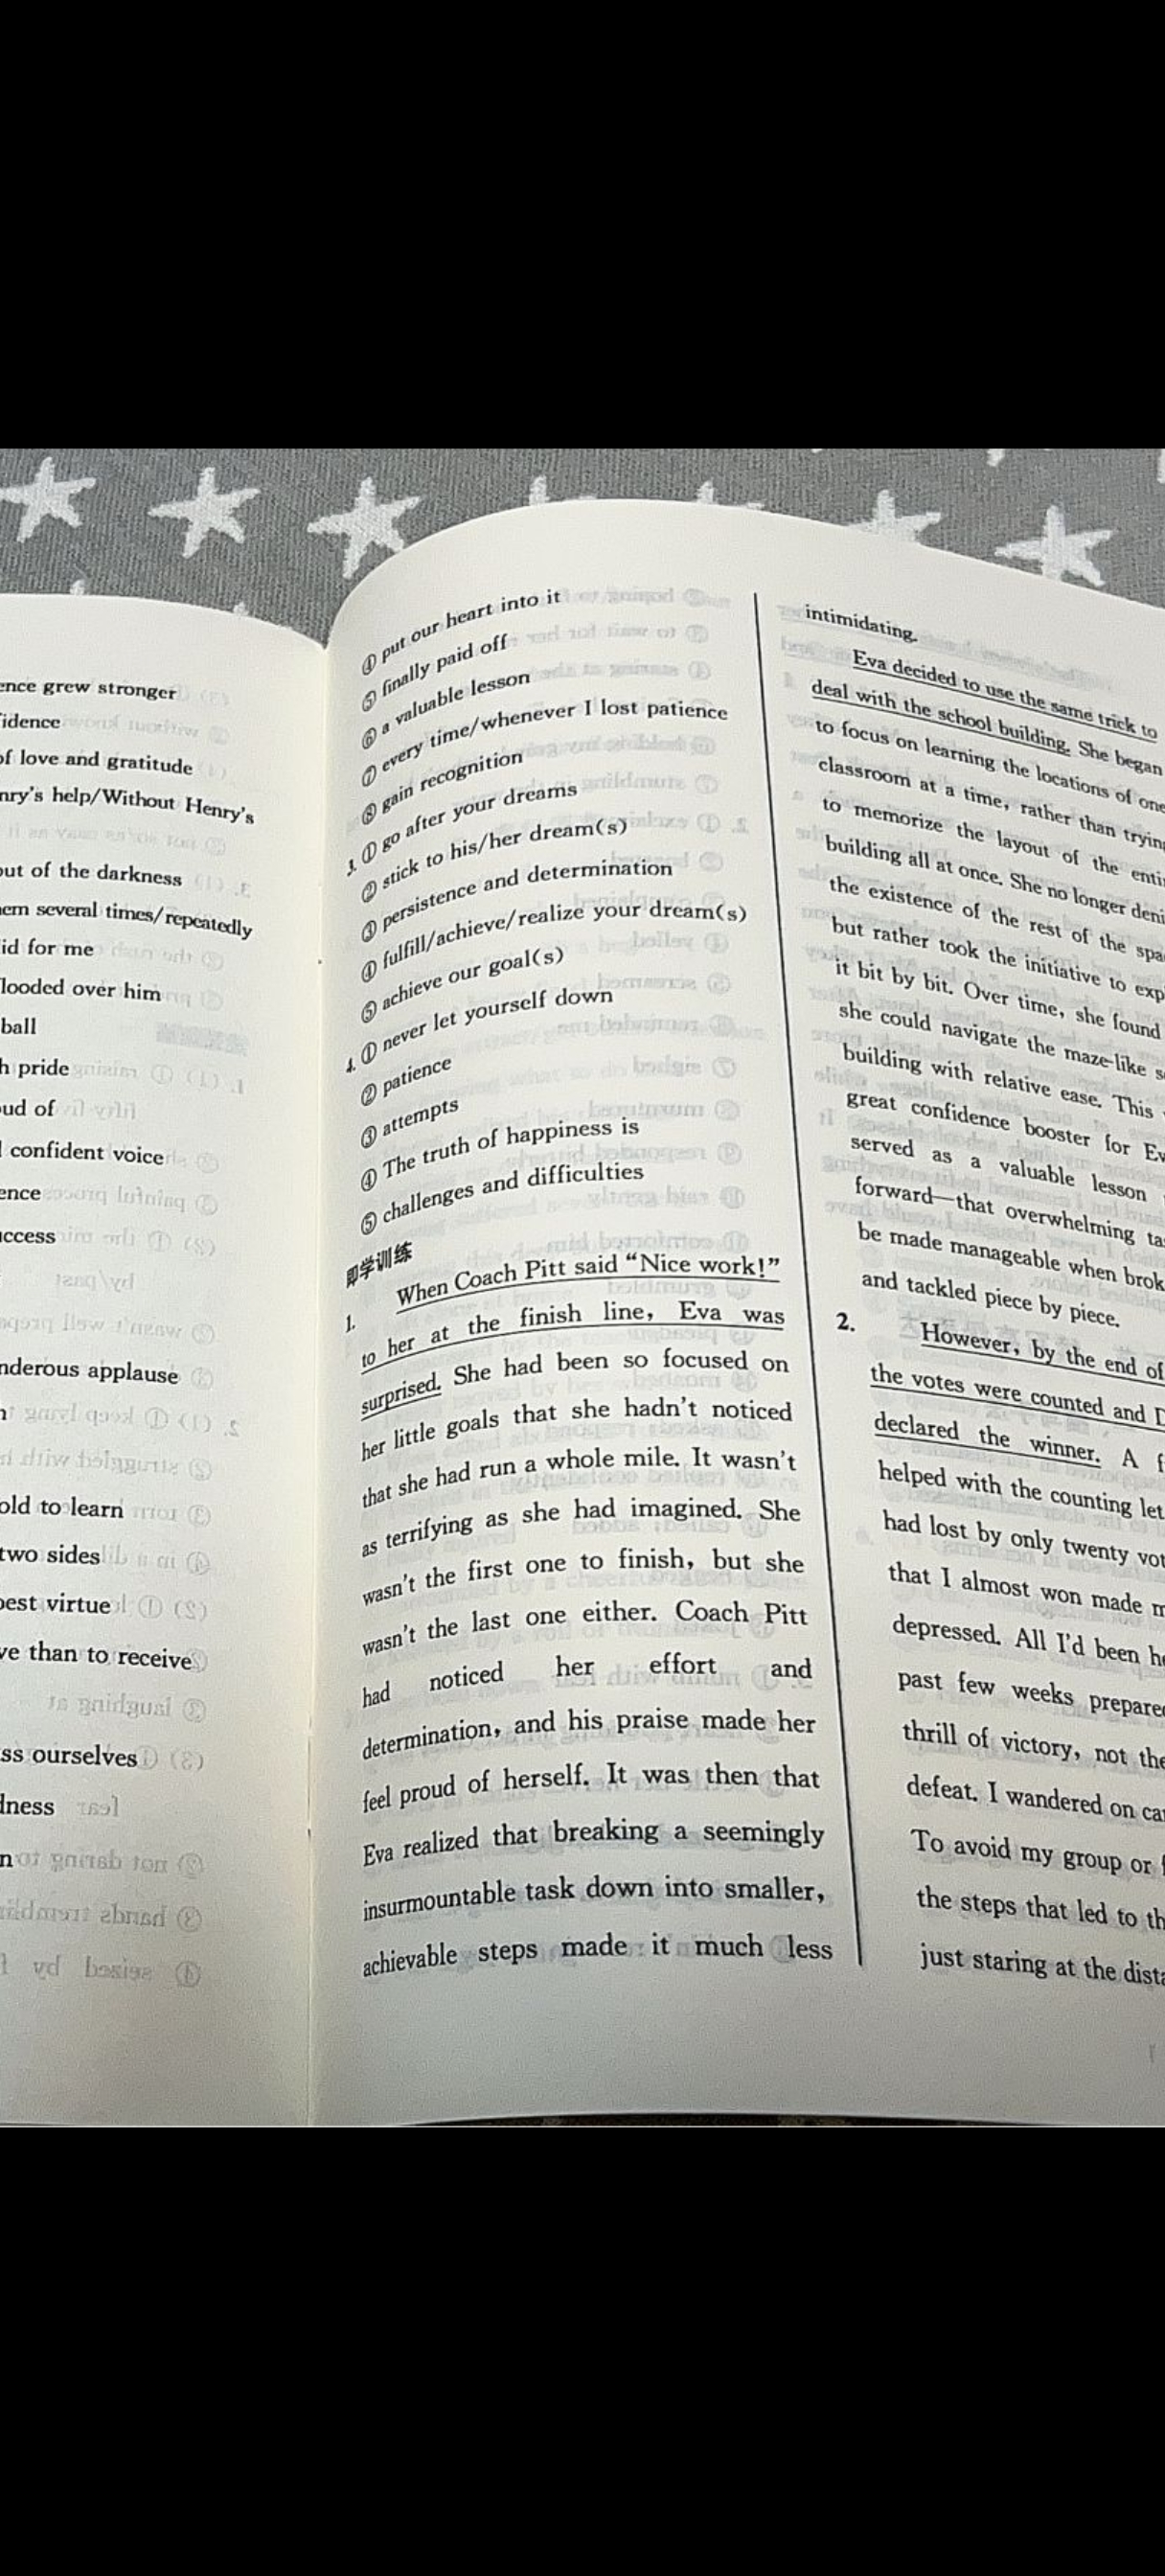 ence grew stronger
idence
of love and gratitude
nry's help/Without Henry's
out of the darkness
em several times/repeatedly
id for me
looded over him
ball
h pride
ud of
confident voice
ence
ccess
nderous applause
old to learn
two sides
best virtue
ve than to receive
ss ourselves
dness
n
④ put our heart into it
⑤ finally paid off
⑥ a valuable lesson
⑦ every time/whenever I lost patience
⑧ gain recognition
3. ① go after your dreams
② stick to his/her dream(s)
③ persistence and determination
④ fulfill/achieve/realize your dream(s)
⑤ achieve our goal(s)
4. ① never let yourself down
② patience
③ attempts
④ The truth of happiness is
⑤ challenges and difficulties
即学训练
1. When Coach Pitt said "Nice work!"
to her at the finish line, Eva was
surprised. She had been so focused on
her little goals that she hadn't noticed
that she had run a whole mile. It wasn't
as terrifying as she had imagined. She
wasn't the first one to finish, but she
wasn't the last one either. Coach Pitt
had noticed her effort and
determination, and his praise made her
feel proud of herself. It was then that
Eva realized that breaking a seemingly
insurmountable task down into smaller,
achievable steps made it much less
intimidating.
Eva decided to use the same trick to
deal with the school building. She began
to focus on learning the locations of one
classroom at a time, rather than trying
to memorize the layout of the enti
building all at once. She no longer deni
the existence of the rest of the spa
but rather took the initiative to exp
it bit by bit. Over time, she found
she could navigate the maze-like s
building with relative ease. This
great confidence booster for Ev
served as a valuable lesson
forward—that overwhelming ta
be made manageable when brok
and tackled piece by piece.
2. However, by the end of
the votes were counted and D
declared the winner. A f
helped with the counting let
had lost by only twenty vot
that I almost won made m
depressed. All I'd been he
past few weeks prepared
thrill of victory, not the
defeat. I wandered on ca
To avoid my group or f
the steps that led to th
just staring at the dista